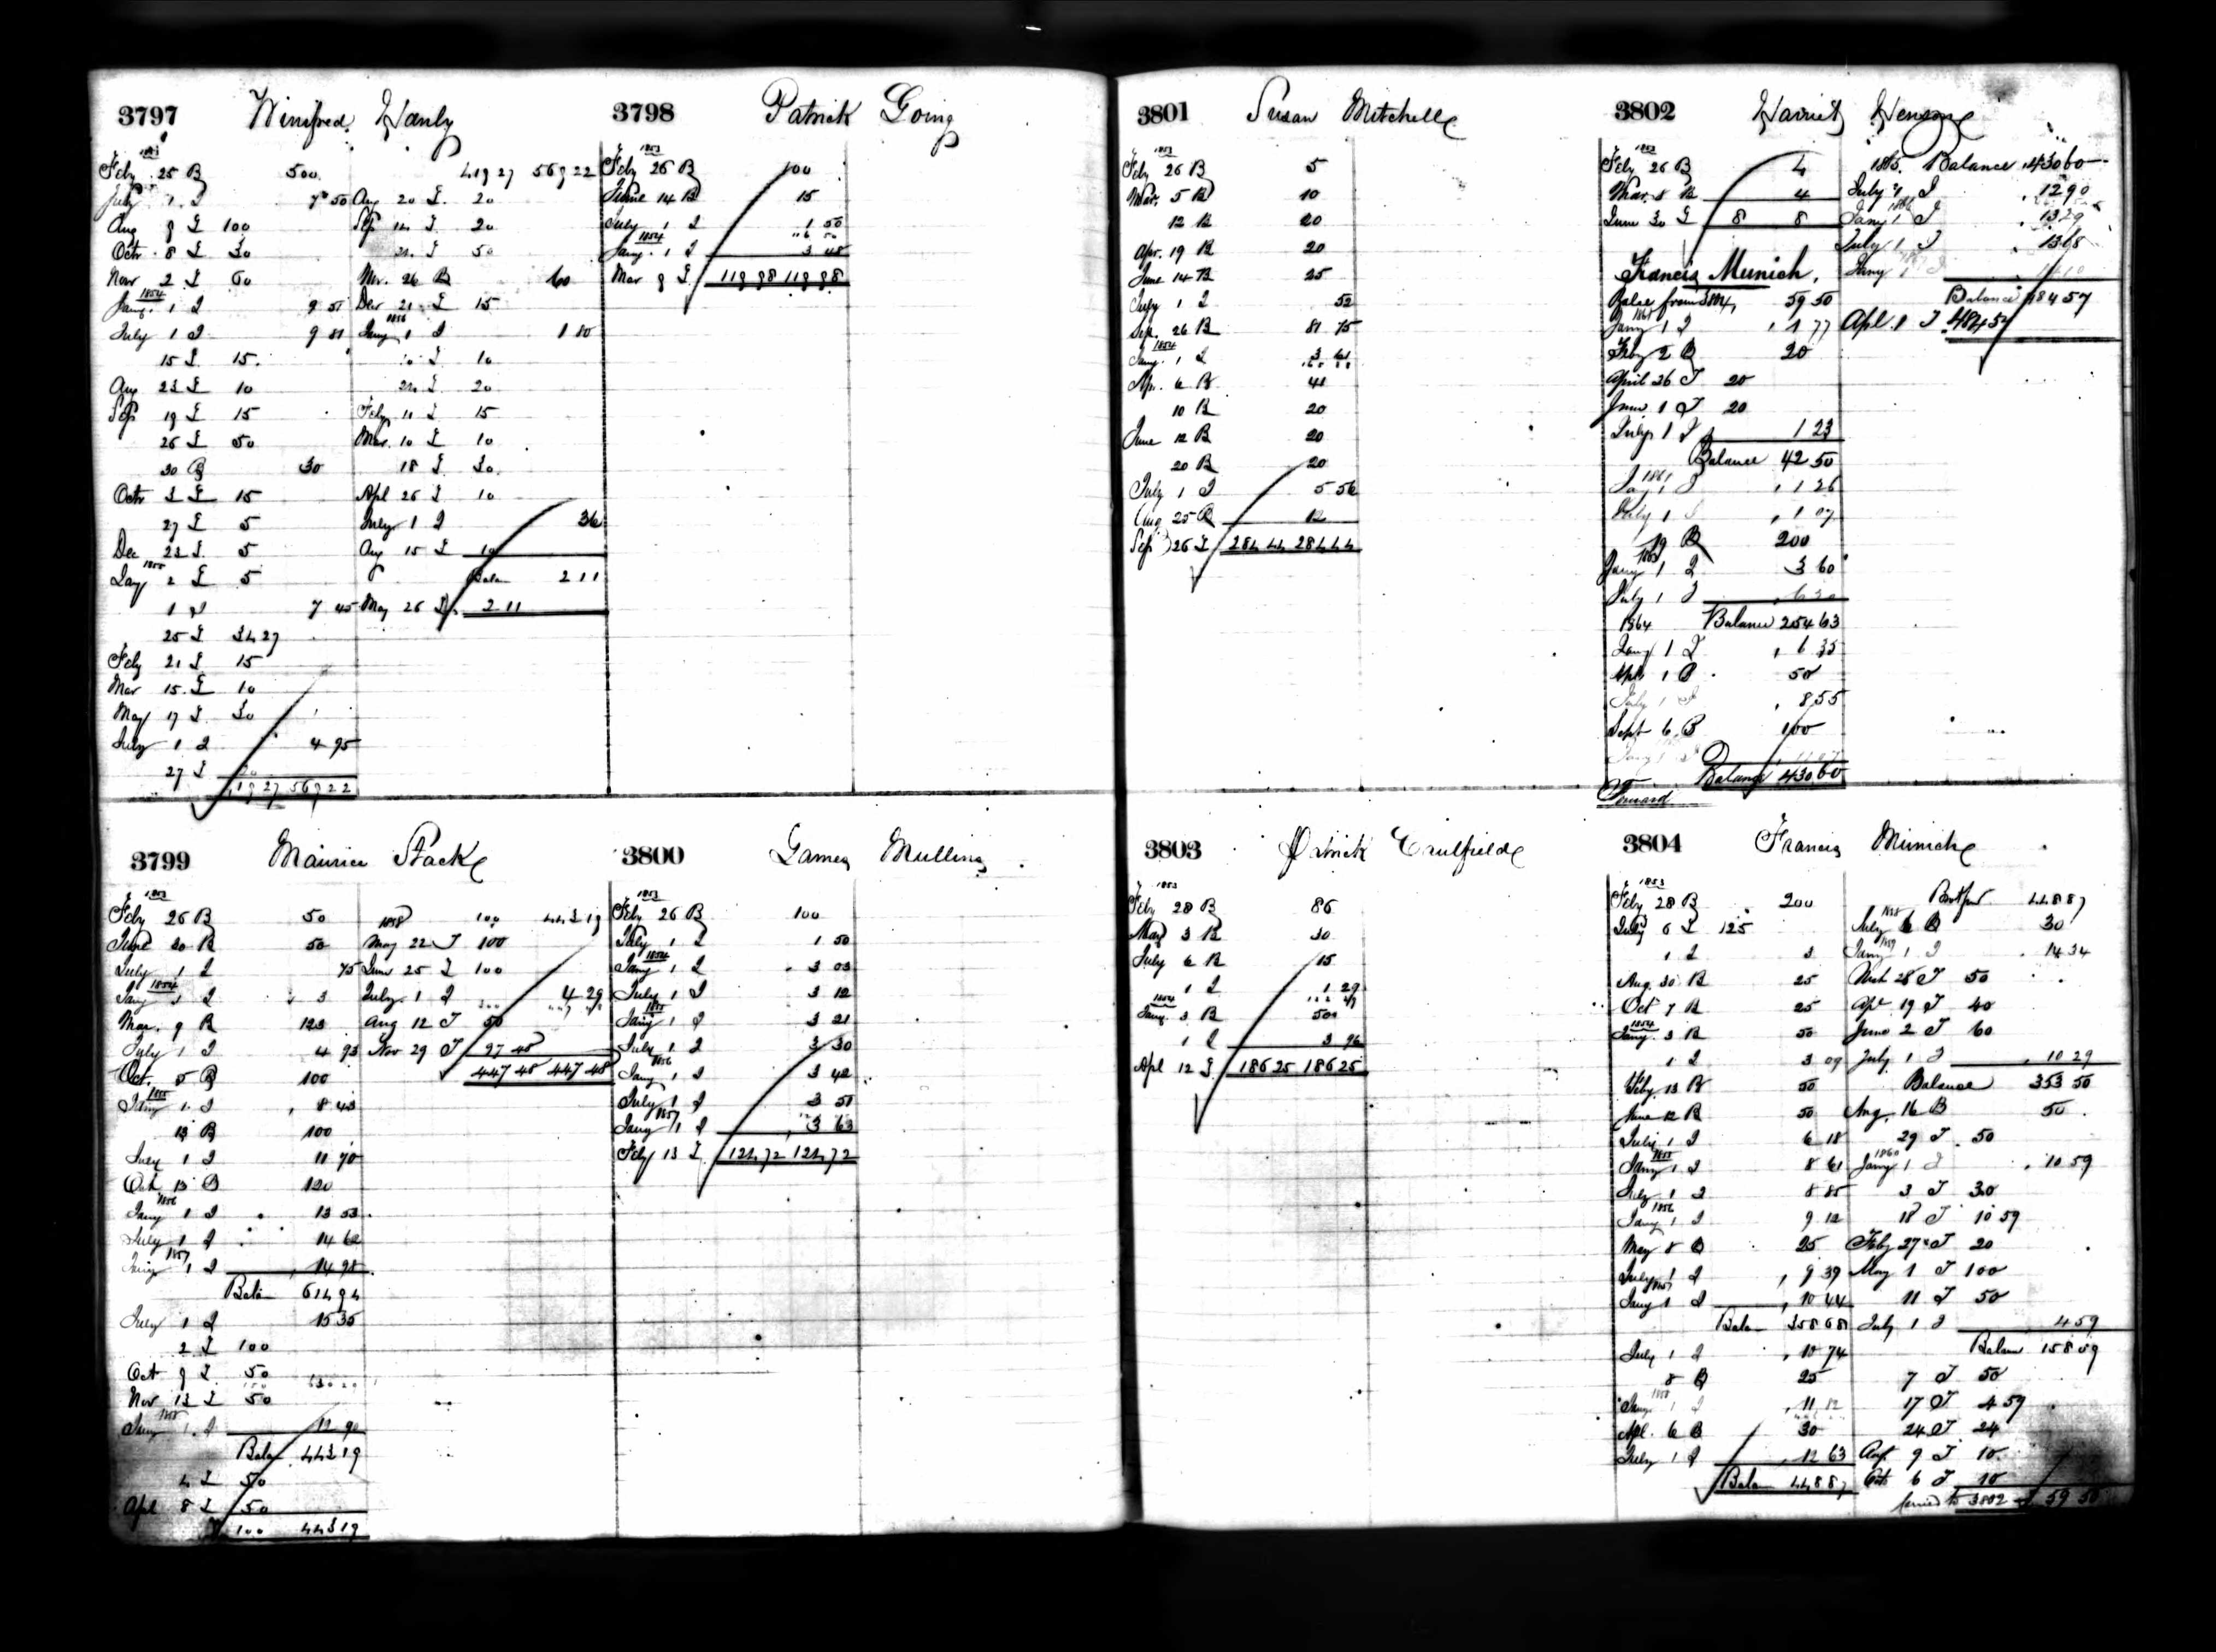 3797 Winifred Hanly
1853
Feby 25 B 500
July 1 I 7 50
Aug 9 I 100
Octr 8 I 30
Novr 2 I 60
1854
Jany 1 I 9 51
July 1 I 9 81
15 I 15
Aug 23 I 10
Sep 19 I 15
26 I 50
30 B 30
Octr 3 I 15
27 I 5
Dec 23 I 5
1855
Jany 2 I 5
1 I 7 45
25 I 34 27
Feby 21 I 15
Mar 15 I 10
May 17 I 30
July 1 I 4 95
27 I
419 27 569 22
419 27 569 22
Aug 20 I 20
Sep 12 I 20
I 50
Nov. 26 B 60
Dec 21 I 15
1856
Jany 1 I 1 80
10 I 10
I 20
Feby 11 I 15
Mar. 10 I 10
18 I 30
Apl 26 I 10
July 1 I 36
Aug 15 I 10
Balan 2 11
May 26 I 2 11
3798 Patrick Going
1853
Feby 26 B 100
June 14 B 15
July 1 I 1 50
1854
Jany 1 I 3 48
Mar 9 I 119 98 119 98
3799 Maurice Stack
1853
Feby 26 B 50
June 20 B 50
July 1 I 75
1854
Jany 1 I 3
Mar. 9 B 123
July 1 I 4 93
Oct. 5 B 100
1855
Jany 1 I 8 43
13 B 100
July 1 I 11 70
Oct 13 B 120
1856
Jany 1 I 13 53
July 1 I 14 62
1857
Jany 1 I 14 98
Balan 614 94
July 1 I 15 35
2 I 100
Oct 9 I 50
Nov 13 I 50
1858
Jany 1 I 12 90
Balan 443 19
4 I 50
Apl 8 I 50
100 443 19
1858 100 443 19
May 22 I 100
June 25 I 100
July 1 I 4 29
Aug 12 I 50
Nov 29 I 97 48
447 48 447 48
3800 James Mullins
1853
Feby 26 B 100
July 1 I 1 50
1854
Jany 1 I 3 03
July 1 I 3 12
1855
Jany 1 I 3 21
July 1 I 3 30
1856
Jany 1 I 3 42
July 1 I 3 51
1857
Jany 1 I 3 63
Feby 13 I 124 72 124 72
3801 Susan Mitchell
1853
Feby 26 B 5
Mar. 5 B 10
12 B 20
Apr. 19 B 20
June 14 B 25
July 1 I 52
Sep. 26 B 81 75
1854
Jany 1 I 3 61
Apr. 6 B 41
10 B 20
June 12 B 20
20 B 20
July 1 I 5 56
Aug 25 B 12
Sep 26 I 284 44 284 44
3802 Harriet
1853
Feby 26 B 4
Mar. 8 B 4
June 30 I 8 8
Francis Munich
Balce from 3804, 59 50
Jany 1 I 1 77
Feby 2 B 20
April 26 I 20
June 1 I 20
July 1 I 1 23
Balance 42 50
Jany 1 I 1 26
July 1 I 1 07
19 B 200
1863
Jany 1 I 3 60
July 1 I
1864 Balance 254 63
Jany 1 I 6 35
Apl 1 B 50
July 1 I 8 55
Sept 6 B 100
Balance 430 60
Forward
1865 Balance 430 60
July 1 I 12 90
1866
Jany 1 I 13 29
July 1 I 13 68
Jany 1 I 14 10
Balance 484 57
Apl. 1 I 484 57
3803 Patrick Caulfield
1853
Feby 28 B 86
May 3 B 30
July 6 B 15
1 I 1 29
1854
Jany. 3 B 50
1 I 3 96
Apl 12 I 186 25 186 25
3804 Francis Munich
1853
Feby 28 B 200
July 6 I 125
1 I 3
Aug. 30 B 25
Oct 7 B 25
1854
Jany 3 B 50
1 I 3 09
Feby 13 B 50
June 12 B 50
July 1 I 6 18
1855
Jany 1 I 8 61
July 1 I 8 85
1856
Jany 1 I 9 12
May 8 B 25
July 1 I 9 39
1857
Jany 1 I 10 44
Balan 358 68
July 1 I 10 74
8 B 25
1858
Jany 1 I 11 12
Apl. 6 B 30
July 1 I 12 63
Balan 448 87
448 87
1858
July 6 B 30
1859
Jany 1 I 14 34
Mch 28 I 50
Apl 19 I 40
June 2 I 60
July 1 I 10 29
Balance 353 50
Aug. 16 B 50
29 I 50
1860
Jany 1 I 10 59
3 I 30
18 I 10 59
Feby 27 I 20
May 1 I 100
11 I 50
July 1 I 4 59
Balan 158 09
7 I 50
17 I 4 59
24 I 24
Aug 9 I 10
Oct 6 I 10
carried to 3802 59 50